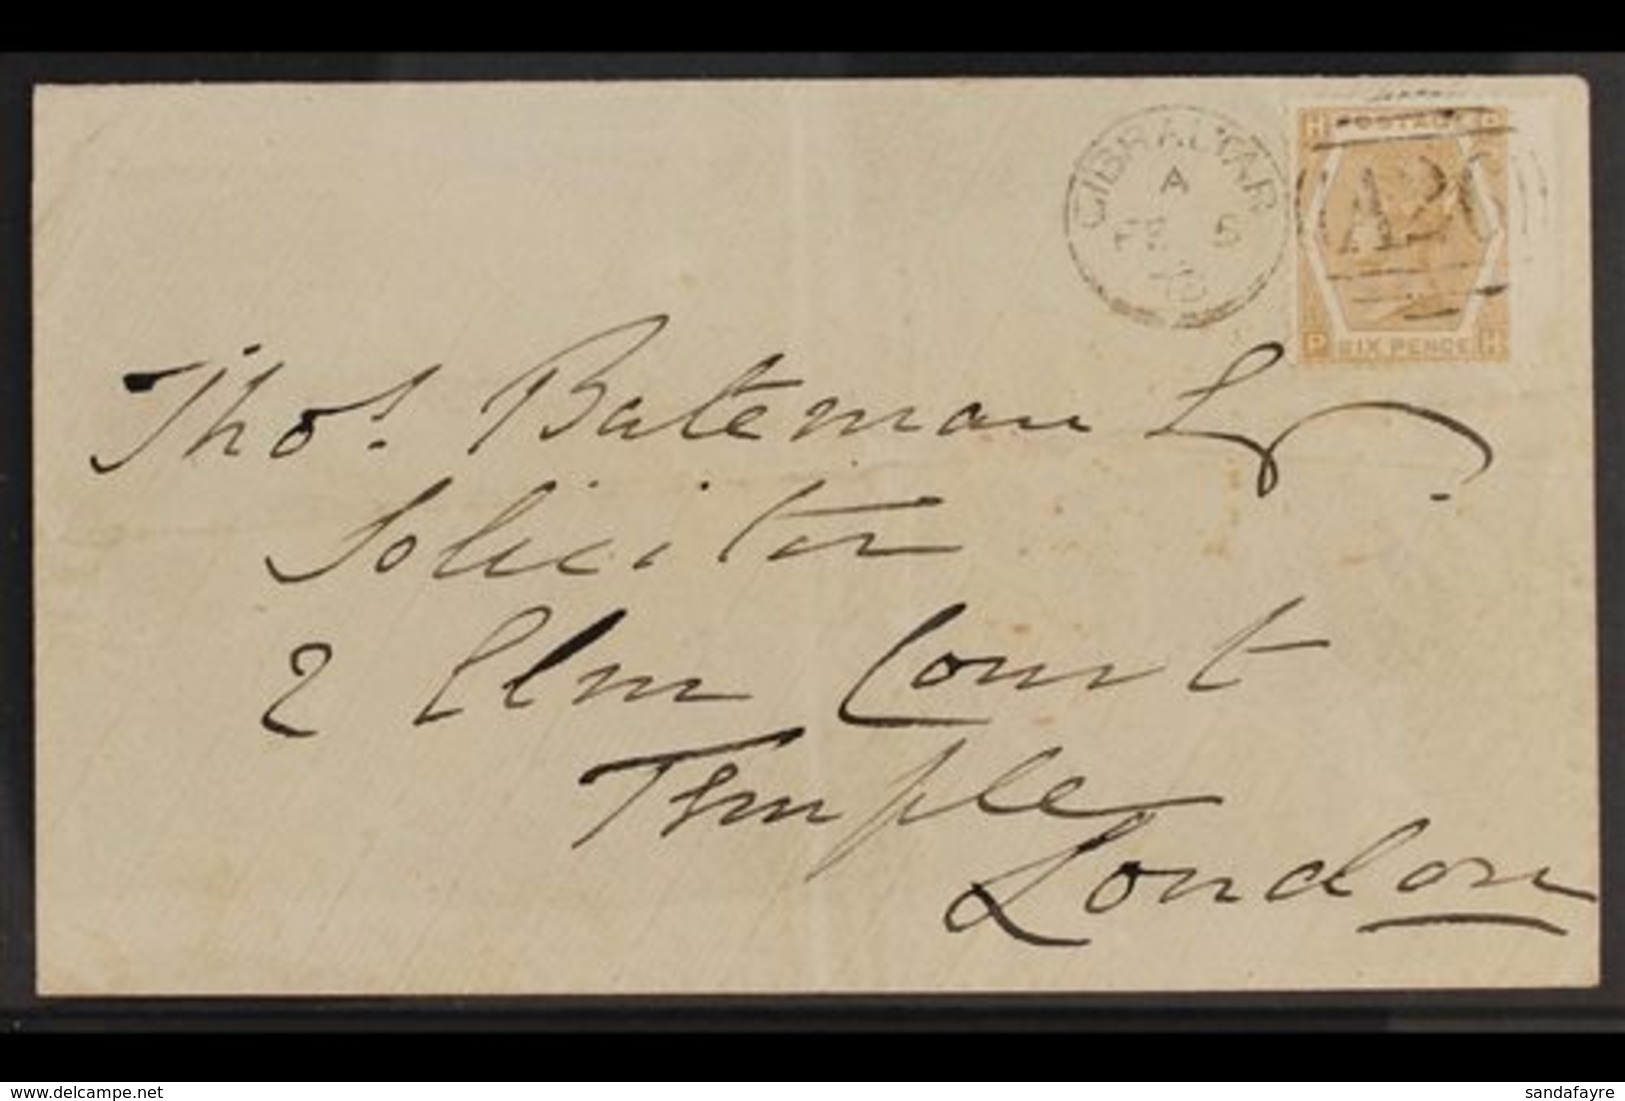 GIBRALTAR
A
FE 5
H POSTAGE P
A26
P SIX PENCE H
Thos. Bateman
Solicitor
2 Elm Court
Temple
London
delcampe.net
sandafayre